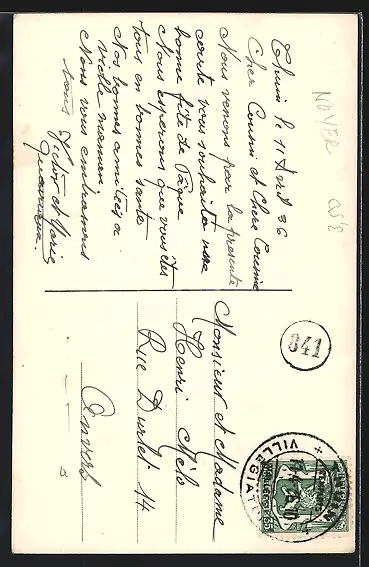 le 11 Avril 36
Cher Cousin et Chère Cousine
Nous venons par la presente
carte vous souhaiter une
bonne fête de Pâque
Nous esperons que vous êtes
tous en bonnes santé
Nos bonnes amitiés a
vieille maman
Nous vous embrassons
tous Victor et Marie
Monsieur et Madame
Henri
Rue 14
Anvers
841
NOYER